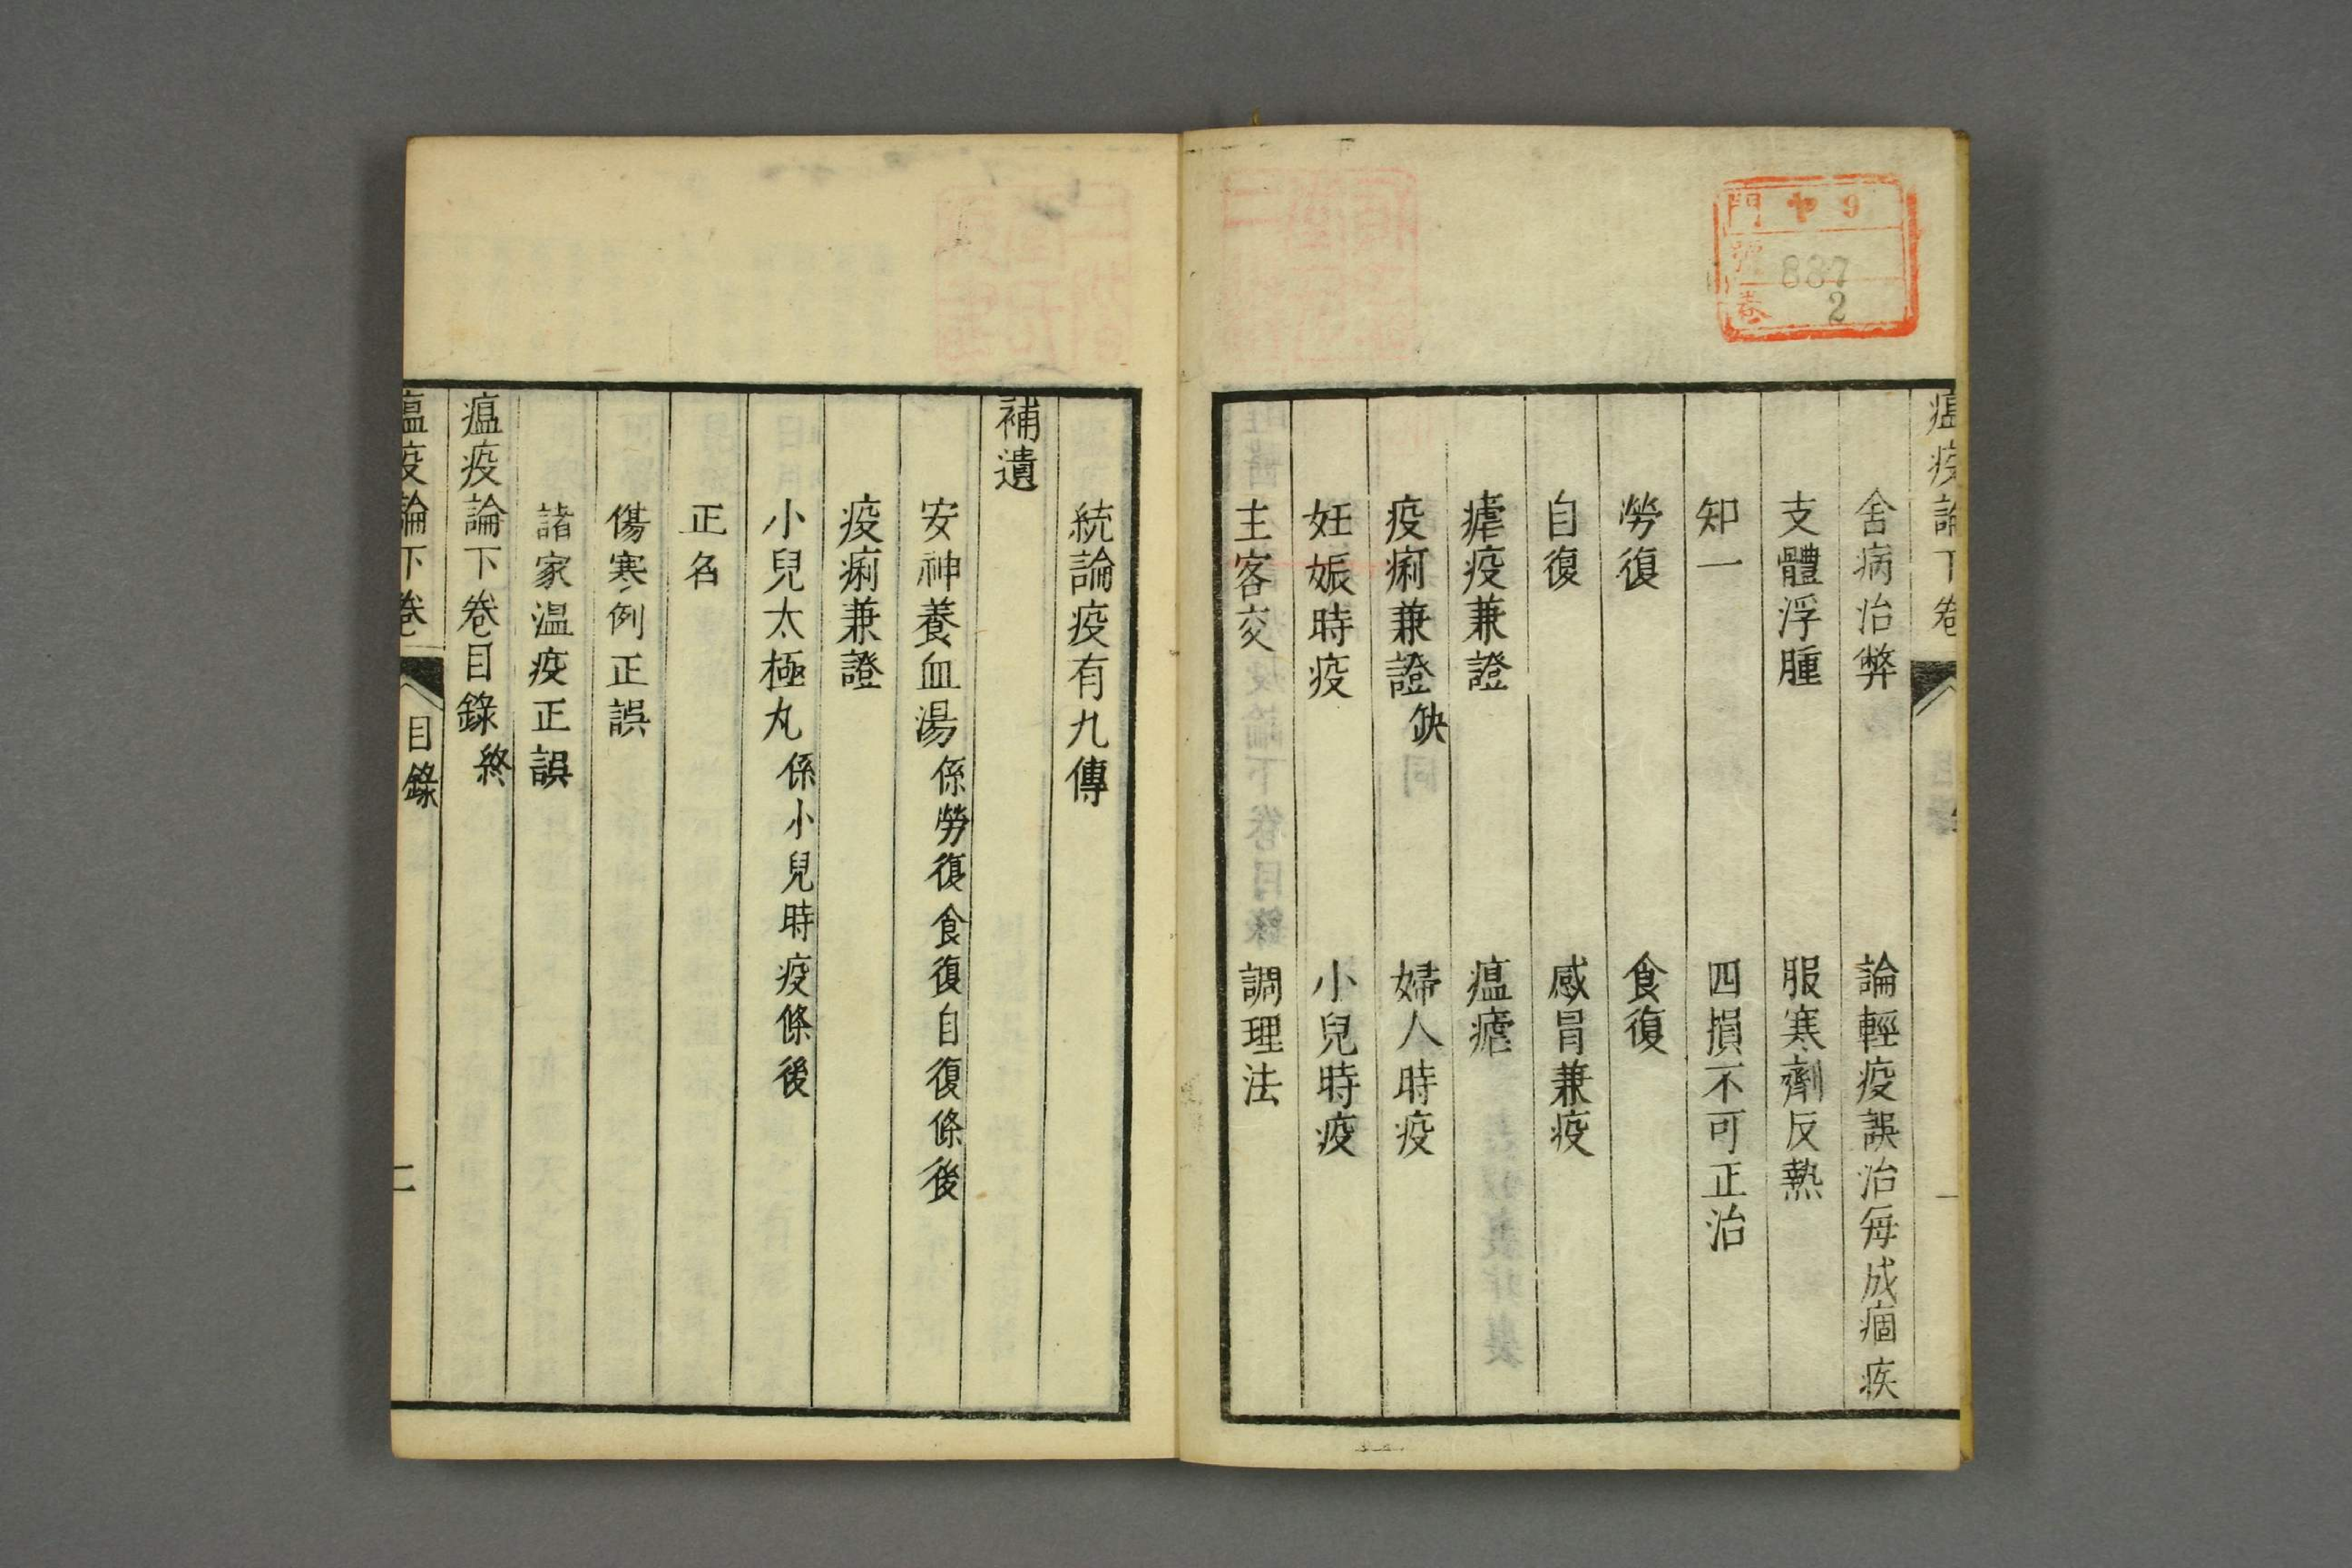 門 ヤ 9
號 837
卷 2
瘟疫論下卷 一
舍病治弊 論輕疫誤治每成痼疾
支體浮腫 服寒劑反熱
知一 四損不可正治
勞復 食復
自復 感冒兼疫
瘧疫兼證 瘟瘧
疫痢兼證 缺 婦人時疫
妊娠時疫 小兒時疫
主客交 調理法
統論疫有九傳
補遺
安神養血湯 係勞復食復自復條後
疫痢兼證
小兒太極丸 係小兒時疫條後
正名
傷寒例正誤
諸家温疫正誤
瘟疫論下卷目錄 終
瘟疫論下卷 目錄 二